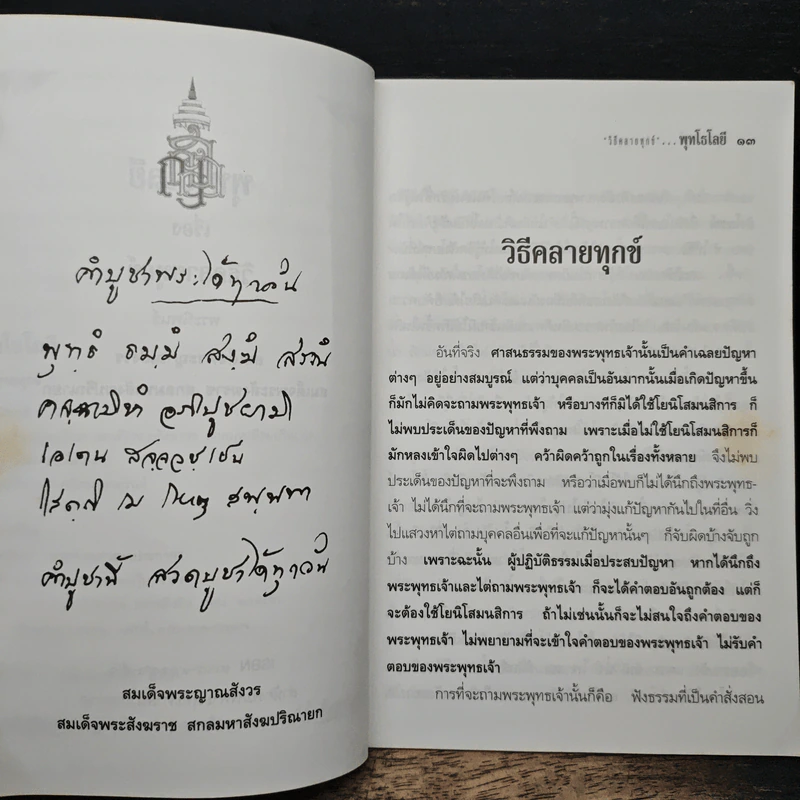 คำบูชาพระได้ทุกวัน
พุทฺธํ ธมฺมํ สงฺฆํ สรณํ
อภิปูชยามิ
เอเตน สจฺจวชฺเชน
โสตฺถิ เม โหตุ สพฺพทา
คำบูชานี้ สวดบูชาได้ทุกวัน
สมเด็จพระญาณสังวร
สมเด็จพระสังฆราช สกลมหาสังฆปริณายก
"วิธีคลายทุกข์"... พุทโธโลยี ๑๓
วิธีคลายทุกข์
อันที่จริง ศาสนธรรมของพระพุทธเจ้านั้นเป็นคำเฉลยปัญหา
ต่างๆ อยู่อย่างสมบูรณ์ แต่ว่าบุคคลเป็นอันมากนั้นเมื่อเกิดปัญหาขึ้น
ก็มักไม่คิดจะถามพระพุทธเจ้า หรือบางทีก็มิได้ใช้โยนิโสมนสิการ ก็
ไม่พบประเด็นของปัญหาที่พึงถาม เพราะเมื่อไม่ใช้โยนิโสมนสิการก็
มักหลงเข้าใจผิดไปต่างๆ คว้าผิดคว้าถูกในเรื่องทั้งหลาย จึงไม่พบ
ประเด็นของปัญหาที่จะพึงถาม หรือว่าเมื่อพบก็ไม่ได้นึกถึงพระพุทธ-
เจ้า ไม่ได้นึกที่จะถามพระพุทธเจ้า แต่ว่ามุ่งแก้ปัญหากันไปในที่อื่น วิ่ง
ไปแสวงหาไต่ถามบุคคลอื่นเพื่อที่จะแก้ปัญหานั้นๆ ก็จับผิดบ้างจับถูก
บ้าง เพราะฉะนั้น ผู้ปฏิบัติธรรมเมื่อประสบปัญหา หากได้นึกถึง
พระพุทธเจ้าและไต่ถามพระพุทธเจ้า ก็จะได้คำตอบอันถูกต้อง แต่ก็
จะต้องใช้โยนิโสมนสิการ ถ้าไม่เช่นนั้นก็จะไม่สนใจถึงคำตอบของ
พระพุทธเจ้า ไม่พยายามที่จะเข้าใจคำตอบของพระพุทธเจ้า ไม่รับคำ
ตอบของพระพุทธเจ้า
การที่จะถามพระพุทธเจ้านั้นก็คือ ฟังธรรมที่เป็นคำสั่งสอน